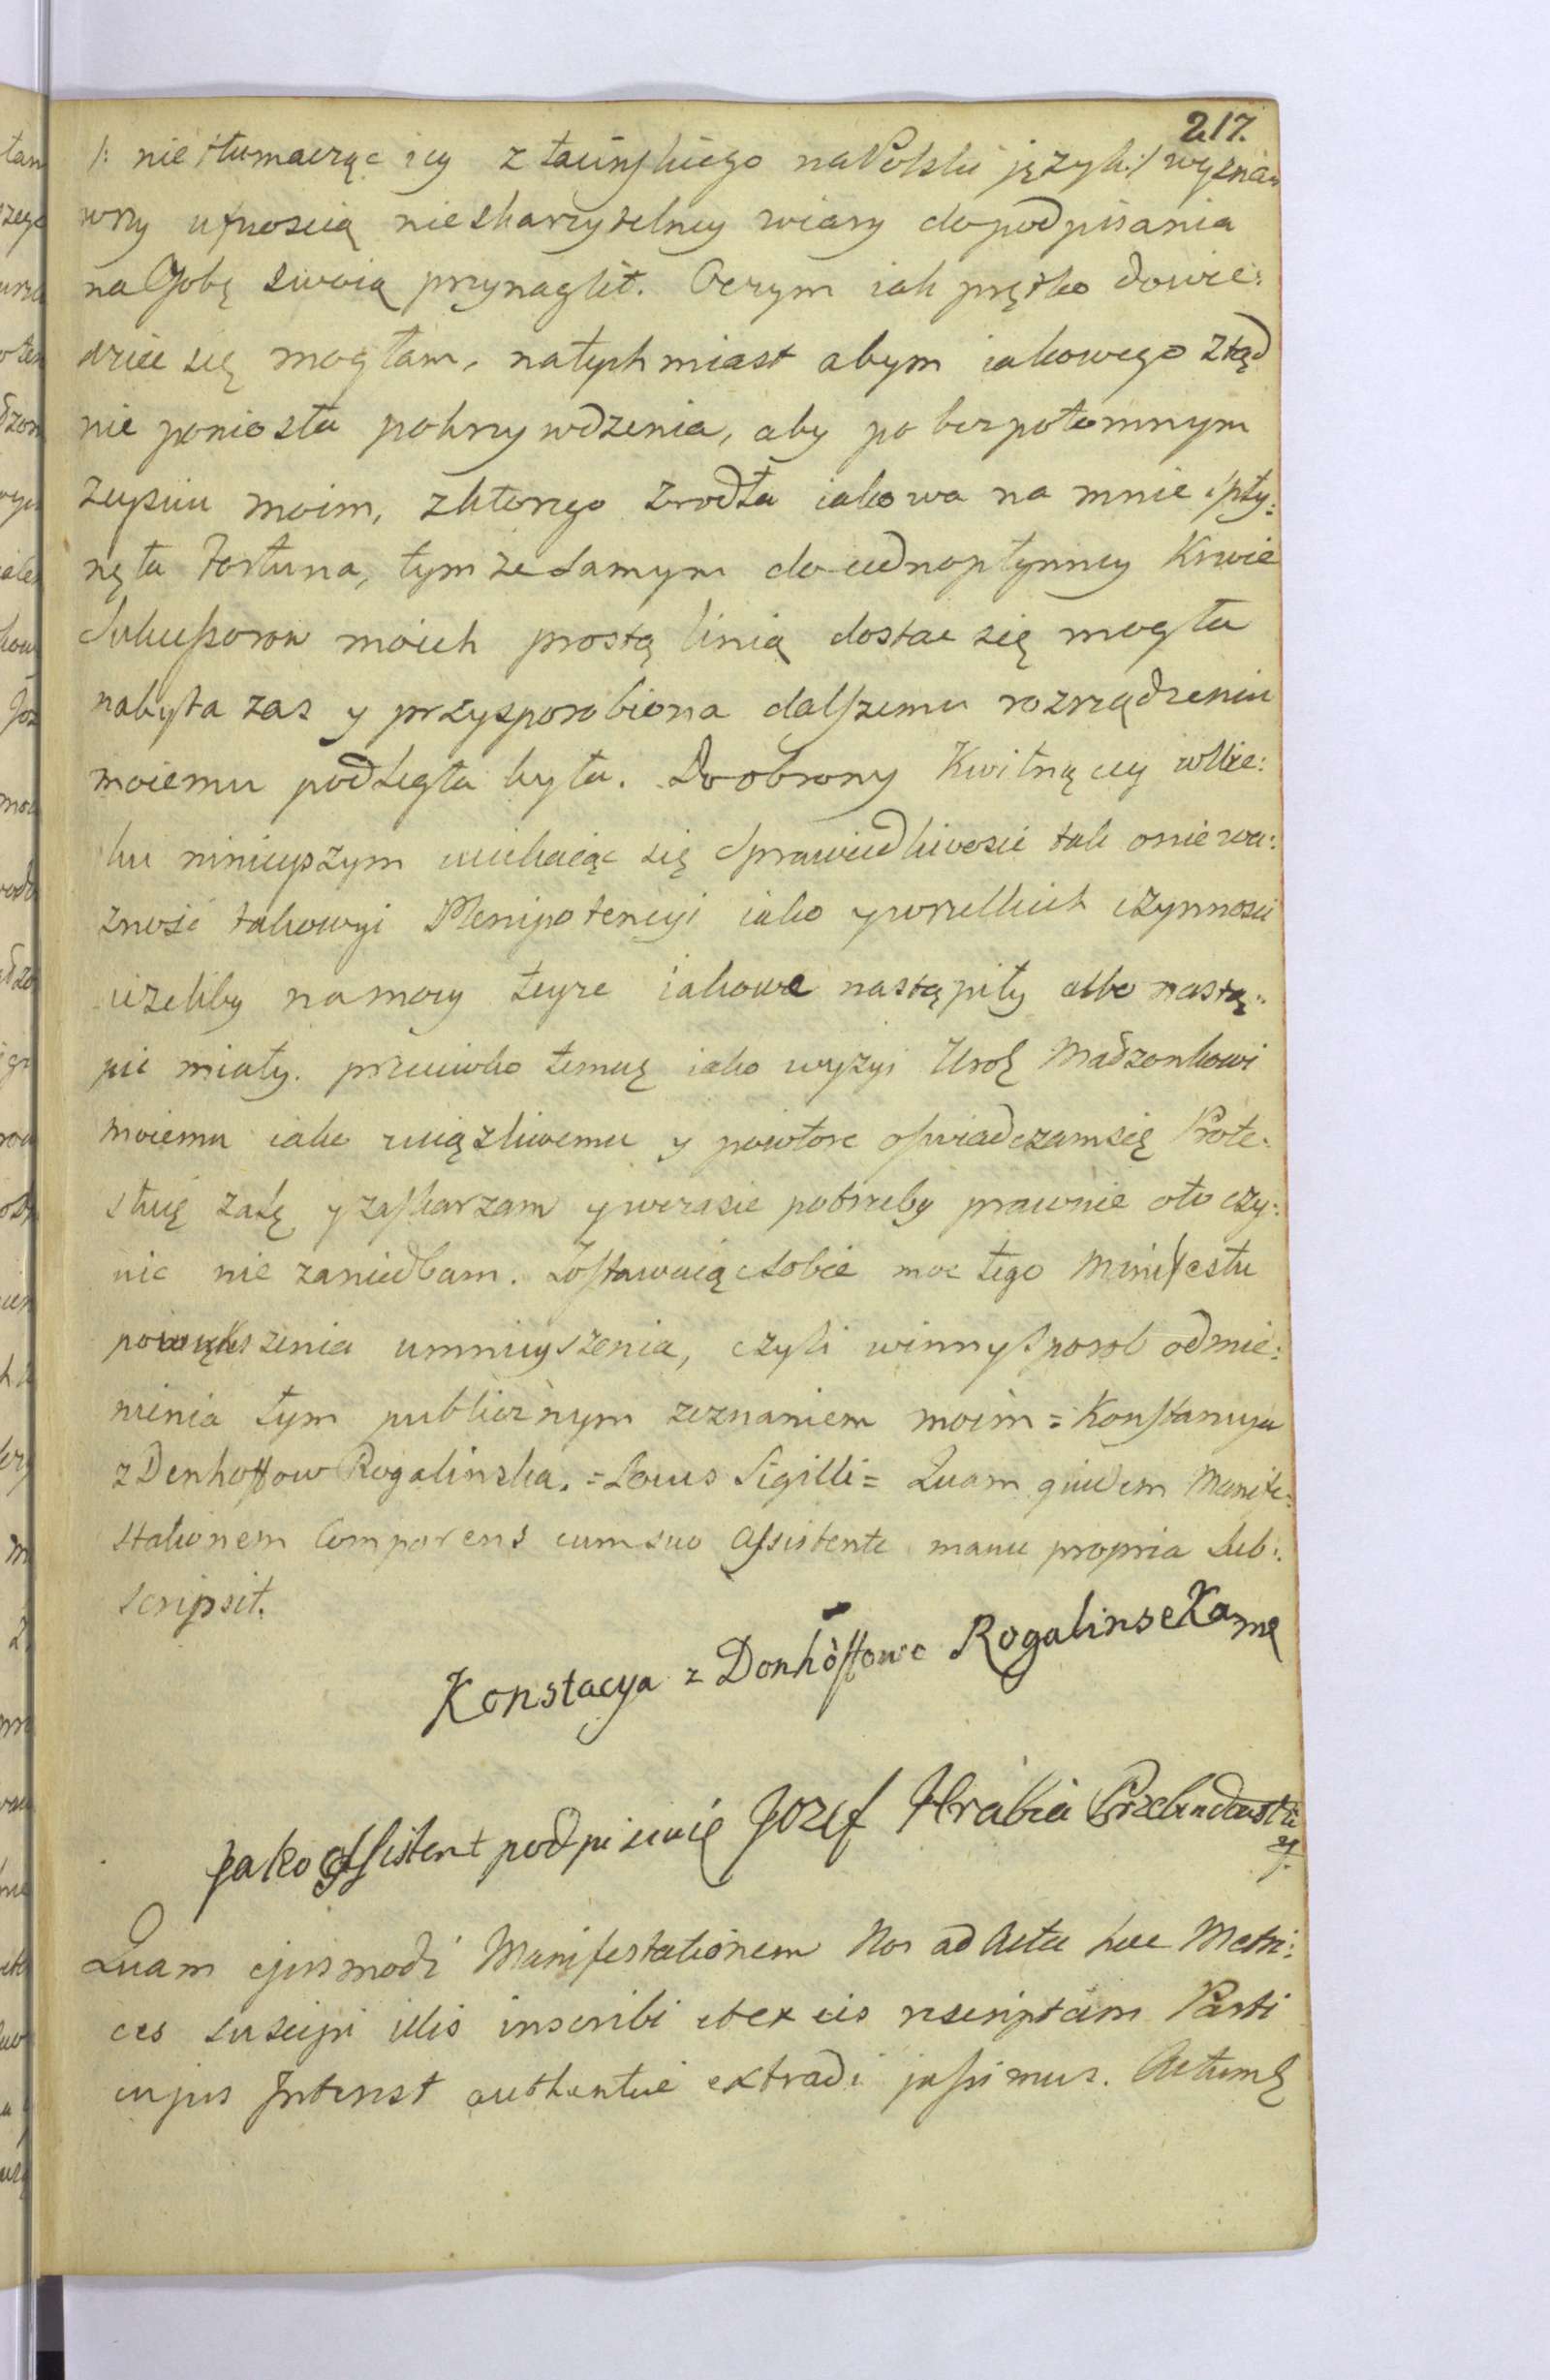 217.
/: nietłumacząc iey z łacinskiego na Polski język :/ wyznaw
wszy ufnoscią nieskazytelney wiary do podpisania
na Osobę swoią przynaglił. Oczym iak prętko dowie:
dziec się mogłam, natychmiast abym iakowego ztąd
nie poniosła pokrzywdzenia, aby po bezpotomnym
zeysciu moim, zktorego zrodła iakowa na mnie spły:
nęła Fortuna, tymże samym do iednopłynney Krwie
Sukcessorow moich prostą linią dostac się mogła
nabyta zas y przysposobiona dalszemu rozrządzeniu
moiemu podległa była. Do obrony Kwitnącey w Wie:
ku ninieyszym uciekaiąc się Sprawiedliwosci tak o niewa:
zność takowyi Plenipotencyi iako y wszelkich czynnosci
ieżeliby na mocy teyże iakowe nastąpiły albo nastą:
pic miały. przeciwko temuż iako wyżyi Urodz Madżonkowi
moiemu iako związkiwemu y powtore oswiadczam się Prote:
stuię załę y zaskarzam y wczasie potrzeby prawnie oto czy:
nic nie zaniedbam. Zostawuiąc sobie moc tego Minifestu
powiększenia umnieyszenia, czyli winny sposob odmie:
nienia tym publicznym zeznaniem moim = Konstancya
z Denhoffow Rogalinska. = Locus Sigilli = Quam quidem Manife:
stationem Comparens cum suo Assistente manu propria sub:
scripsit.
Konstacya z Donhoffowc Rogalinscka mę
Jako Assistent podpisuię Jozef Hrabia Przebendowski
Quam ejusmodi Manifestationem Nos ad Acta haec Metri:
ces suscipi illis inscribi et ex eis rescriptam Parti
cujus Interest authentice extradi jussimus. Actumq